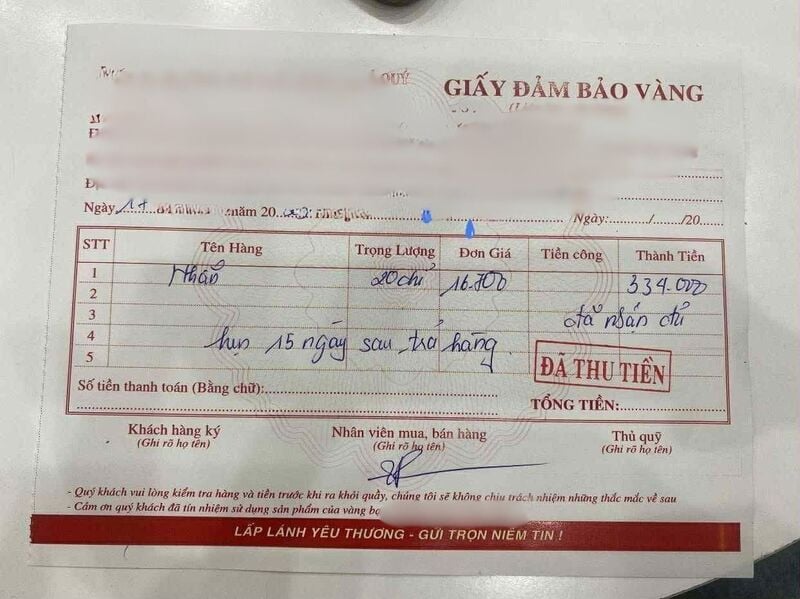 QUÝ
GIẤY ĐẢM BẢO VÀNG
Ngày 17 năm 20
Ngày:....../....../20......
STT Tên Hàng Trọng Lượng Đơn Giá Tiền công Thành Tiền
1 Nhẫn 20 chỉ 16.700 334.000
2
3 đã nhận đủ
4 hẹn 15 ngày sau trả hàng
5
ĐÃ THU TIỀN
Số tiền thanh toán (Bằng chữ):
TỔNG TIỀN:
Khách hàng ký Nhân viên mua, bán hàng Thủ quỹ
(Ghi rõ họ tên) (Ghi rõ họ tên) (Ghi rõ họ tên)
- Quý khách vui lòng kiểm tra hàng và tiền trước khi ra khỏi quầy, chúng tôi sẽ không chịu trách nhiệm những thắc mắc về sau
- Cảm ơn quý khách đã tín nhiệm sử dụng sản phẩm của vàng
LẤP LÁNH YÊU THƯƠNG - GỬI TRỌN NIỀM TIN !